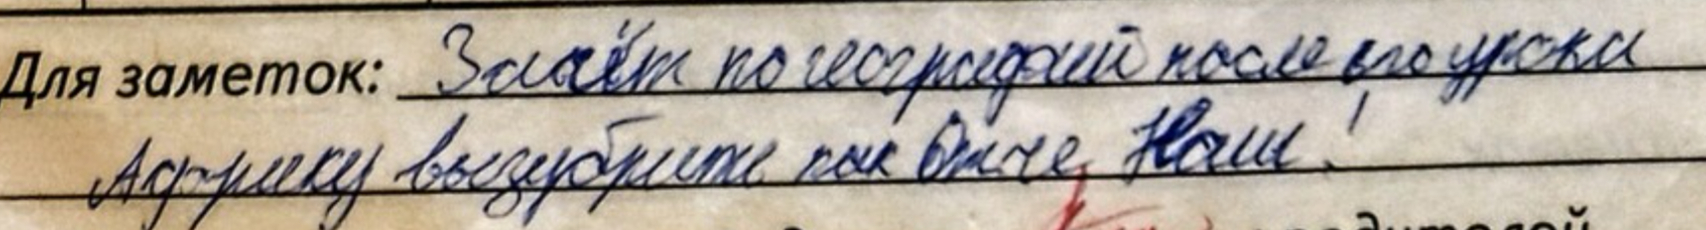 Для заметок: Зачёт по географий после 6го урока
Африку вызубрите как Отче Наш!
родителей